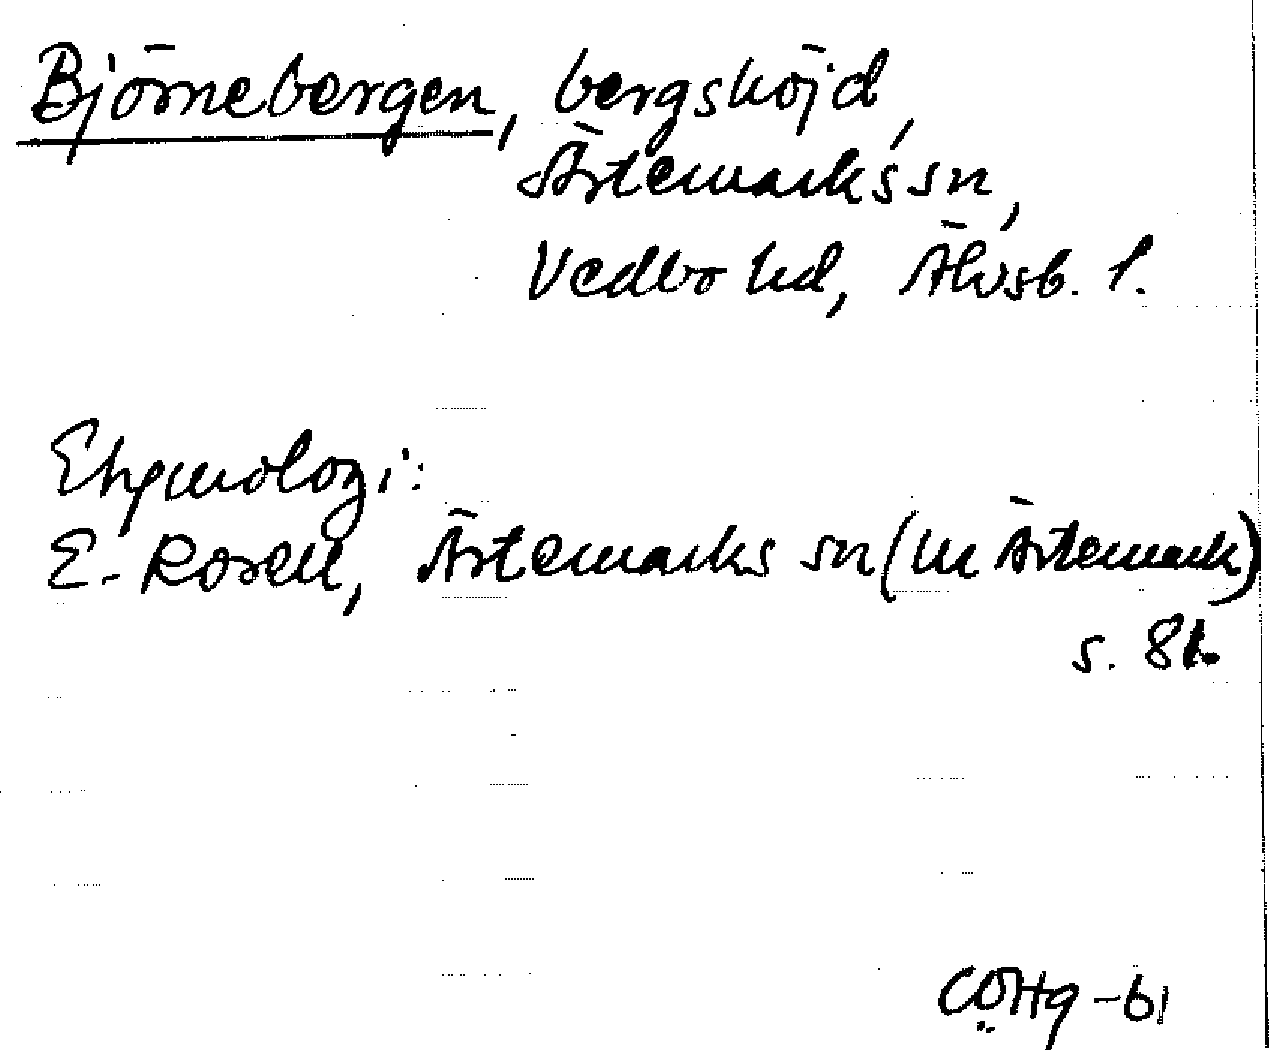 Björnebergen, bergshöjd,
Ärtemarks sn,
Vedbo hd, Älvsb. l.
Etymologi:
E. Rosell, Ärtemarks sn (ur Ärtemark)
s. 81.
-61